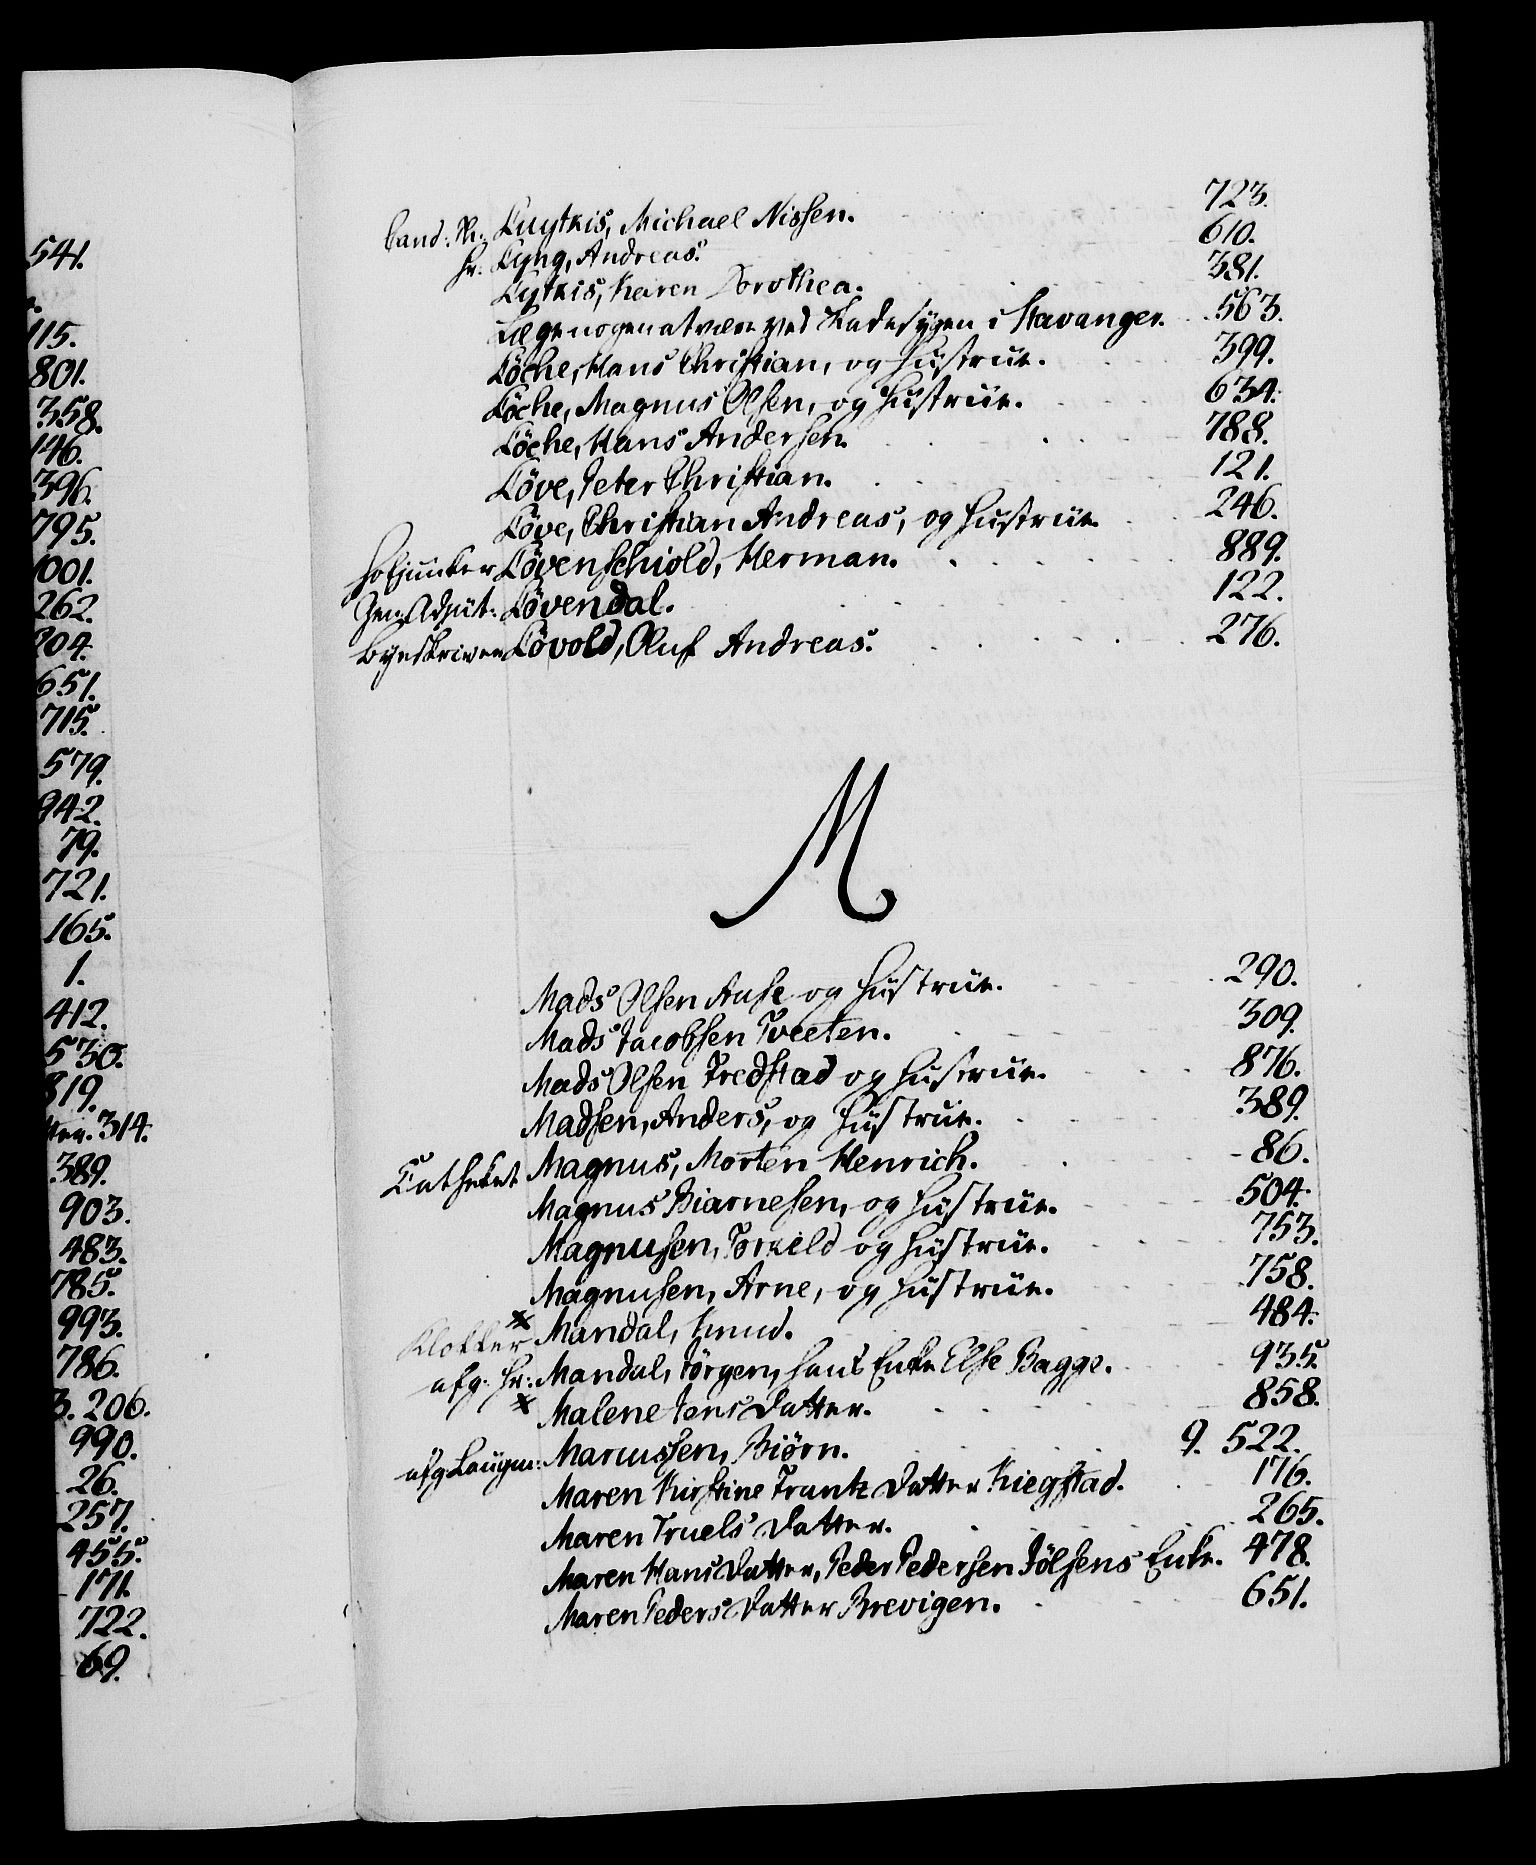 541.
115.
801.
358.
146.
396.
795.
1001.
262.
204.
651.
715.
579.
942.
79.
721.
165.
1.
412.
530.
819.
314.
389.
903.
483.
785.
993.
786.
3. 206.
990.
26.
257.
455.
171.
722.
69.
Cand: Ph: Luytkis, Michael Nissen. 723.
Hr: Lyng, Andreas. 610.
Lytkis, Karen Dorothea. 381.
Læge ved Radesygen i Stavanger. 563.
Löche, Hans Christian, og Hustrue. 399.
Löche, Magnus Olsen, og Hustrue. 634.
Löche, Hans Andersen. 788.
Löve, Peter Christian. 121.
Löve, Christian Andreas, og Hustrue. 246.
Hofjunker Lövenschiold, Herman. 889.
Gen: Adjut: Lövendal. 122.
Byeskriver Lövold, Oluf Andreas. 276.
M
Mads Olsen og Hustrue. 290.
Mads Jacobsen Tveeten. 309.
Mads Olsen Fredstad og Hustrue. 876.
Madsen, Anders, og Hustrue. 389.
Catheket Magnus, Morten Henrich. 86.
Magnus Biarnesen, og Hustrue. 504.
Magnusen, Torkild og Hustrue. 753.
Magnusen, Arne, og Hustrue. 758.
Klokker Mandal, Knud. 484.
afg: Hr: Mandal, Jörgen, hans Enke Else Bagge. 935.
Malene Jens Datter. 858.
afg Laugm: Marcussen, Biørn. 9. 522.
Maren Kirstine Frantz Datter Kiegstad. 176.
Maren Truels Datter. 265.
Maren Hans Datter, Peder Pedersen Jölsens Enke. 478.
Maren Peders Datter Brevigen. 651.